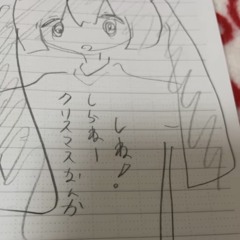 しね!
しらねー
クリスマスなんか